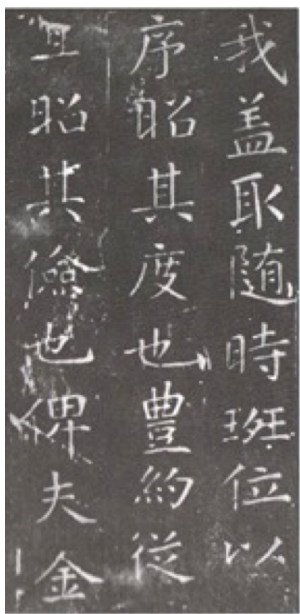 我盖取随時班位以
序昭其度也豊約從
宜昭其儉也俾夫金